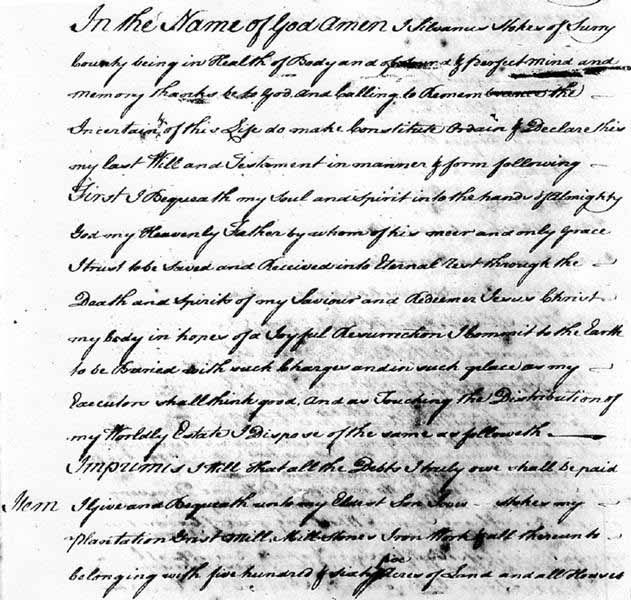 In the Name of God Amen I Silvanus Stokes of Surry
County being in Health of Body and of sound & perfect mind and
memory thanks be to God. And Calling to Remembrance the
Incertainty of this Life do make Constitute Ordain & Declare this
my last Will and Testament in manner & form following
First I Bequeath my Soul and Spirit into the hands of Almighty
God my Heavenly Father by whom of his meer and only Grace
I trust to be Saved and Received into Eternal rest through the
Death and Spirit of my Saviour and Redeemer Jesus Christ
my body in hopes of a Joyful Resurrection I Commit to the Earth
to be Buried with such Charges and in such place as my
Executors shall think good. And as Touching the Distribution of
my Worldly Estate I Dispose of the same as followeth
Imprimis I Will that all the Debts I truly owe shall be paid
Item I Give and Bequeath unto my Eldest Son Stokes my
Plantation Grist Mill Mill Stones Iron Work & all thereunto
belonging with five hundred & sixty Acres of Land and all Houses